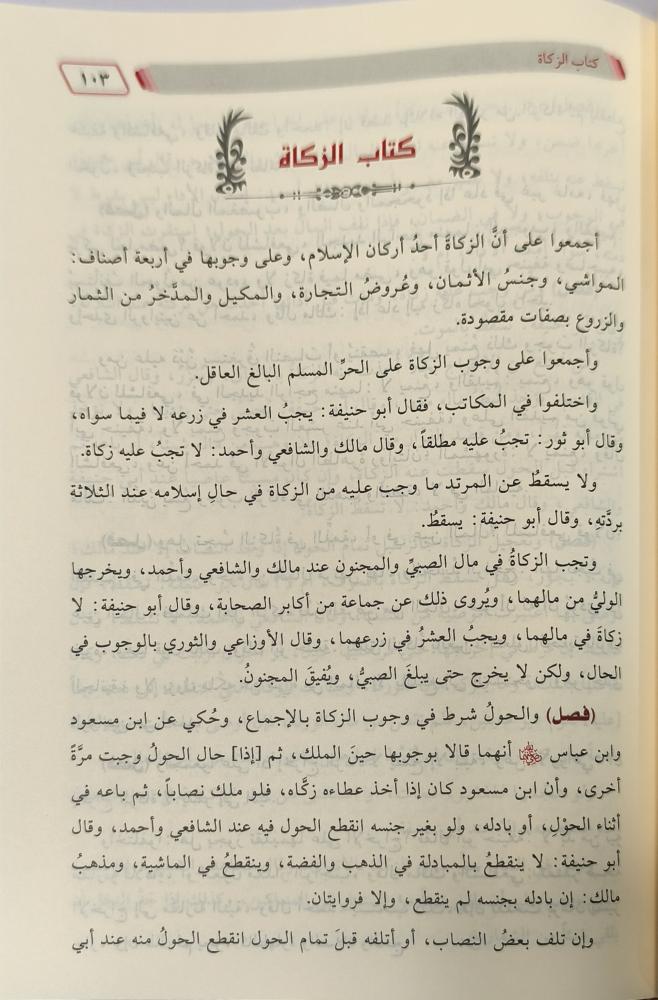 كتاب الزكاة
١٠٣
كتاب الزكاة
أجمعوا على أنَّ الزكاةَ أحدُ أركان الإسلام، وعلى وجوبها في أربعة أصناف:
المواشي، وجنسُ الأثمان، وعُروضُ التجارة، والمكيل والمدَّخرُ من الثمار
والزروع بصفات مقصودة.
وأجمعوا على وجوب الزكاة على الحرِّ المسلم البالغ العاقل.
واختلفوا في المكاتب، فقال أبو حنيفة: يجبُ العشر في زرعه لا فيما سواه،
وقال أبو ثور: تجبُ عليه مطلقاً، وقال مالك والشافعي وأحمد: لا تجبُ عليه زكاة.
ولا يسقطُ عن المرتد ما وجب عليه من الزكاة في حالِ إسلامه عند الثلاثة
بردَّتهِ، وقال أبو حنيفة: يسقطُ.
وتجب الزكاةُ في مال الصبيِّ والمجنون عند مالك والشافعي وأحمد، ويخرجها
الوليُّ من مالهما، ويُروى ذلك عن جماعة من أكابر الصحابة، وقال أبو حنيفة: لا
زكاةَ في مالهما، ويجبُ العشرُ في زرعهما، وقال الأوزاعي والثوري بالوجوب في
الحال، ولكن لا يخرج حتى يبلغَ الصبيُّ، ويُفيقَ المجنونُ.
(فصل) والحولُ شرط في وجوب الزكاة بالإجماع، وحُكي عن ابن مسعود
وابن عباس ﵄ أنهما قالا بوجوبها حينَ الملك، ثم [إذا] حال الحولُ وجبت مرَّةً
أخرى، وأن ابن مسعود كان إذا أخذ عطاءه زكَّاه، فلو ملك نصاباً، ثم باعه في
أثناء الحوْلِ، أو بادله، ولو بغير جنسه انقطع الحول فيه عند الشافعي وأحمد، وقال
أبو حنيفة: لا ينقطعُ بالمبادلة في الذهب والفضة، وينقطعُ في الماشية، ومذهبُ
مالك: إن بادله بجنسه لم ينقطع، وإلا فروايتان.
وإن تلف بعضُ النصاب، أو أتلفه قبلَ تمام الحول انقطع الحولُ منه عند أبي